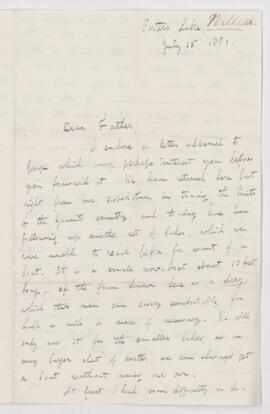 Porters Lake,
July 15. 189
Dear Father
I enclose a letter addressed to
George which may perhaps interest you before
you forward it. We have returned here last
night from our expedition in tracing the limits
of the granite country and to-day have been
following up another set of lakes, which we
were unable to reach before for want of a
boat. It is a small row-boat about 10 feet
long, of the form known here as a dory,
which two men can carry comfortably for
half a mile or more if necessary. We will
only use it for the smaller lakes as on
any larger sheet of water we can always get
a boat without using our own.
At least I find some difficulty in de-